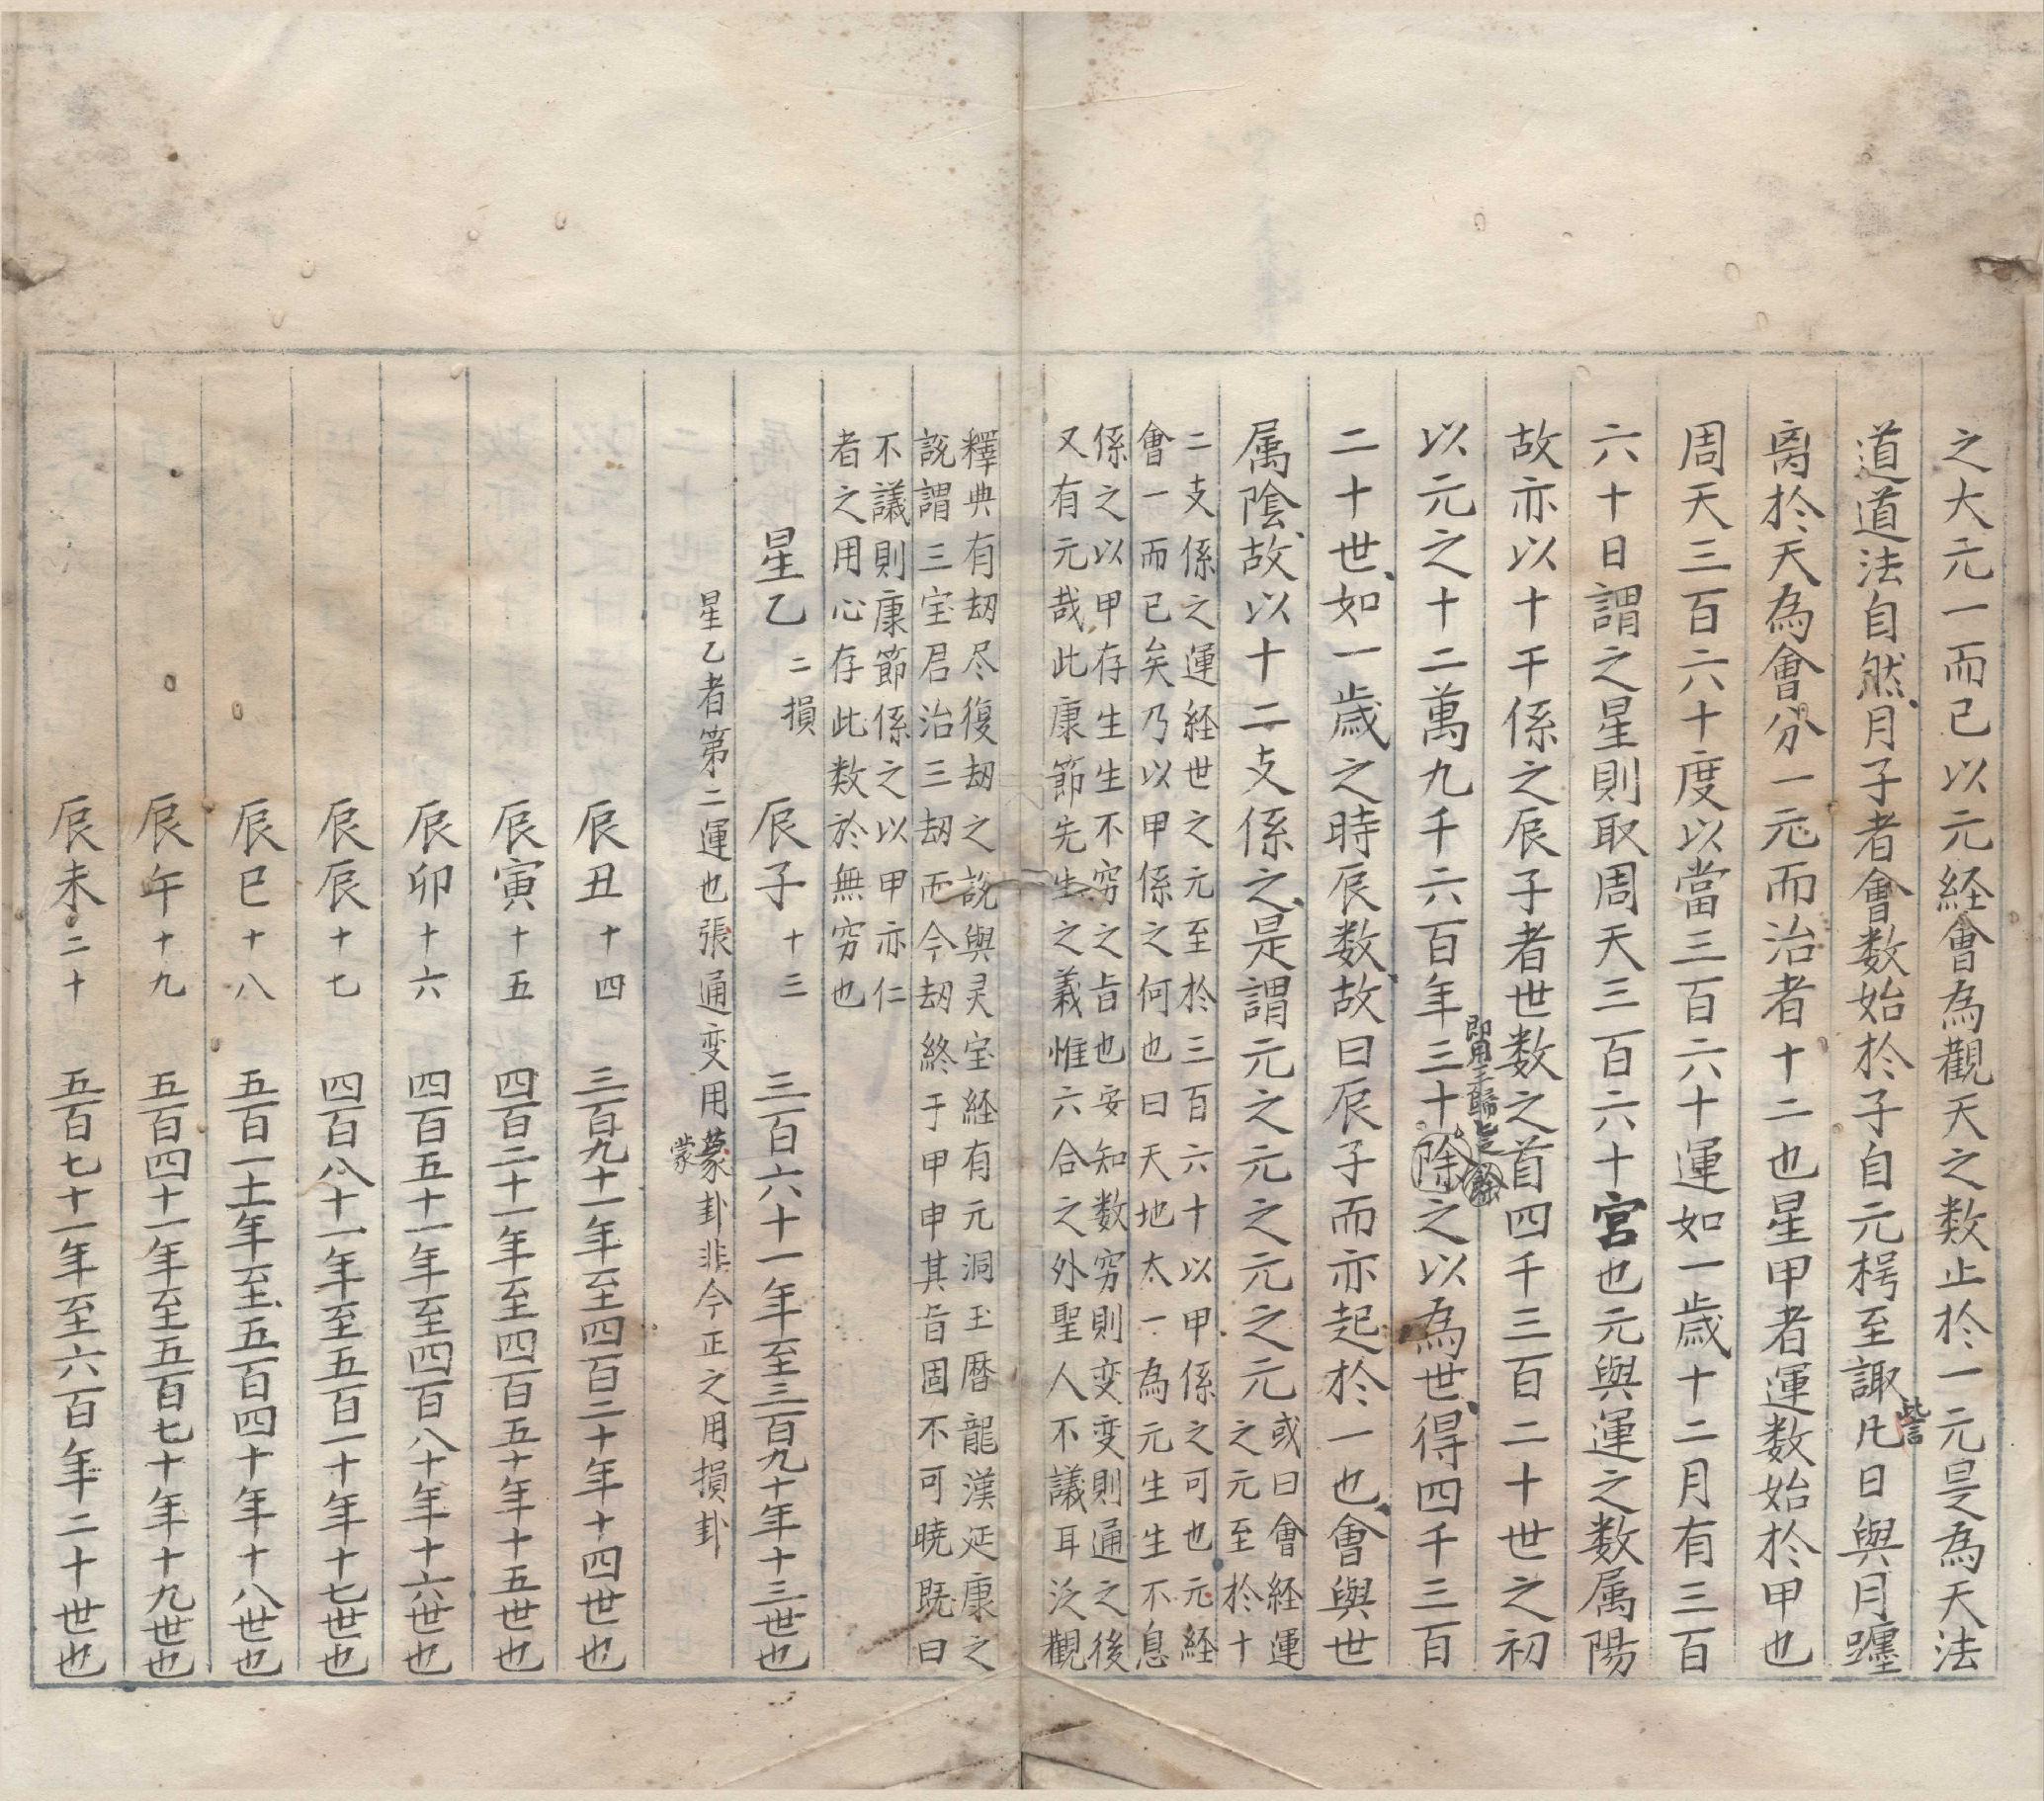 之大元一而已以元経會為觀天之数止於一元是為天法
道道法自然月子者會数始於子自元枵至諏凡日與月躔
离於天為會分一元而治者十二也星甲者運数始於甲也
周天三百六十度以當三百六十運如一歲十二月有三百
六十日謂之星則取周天三百六十宮也元與運之数属陽
故亦以十干係之辰子者世数之首四千三百二十世之初
以元之十二萬九千六百年三十除之以為世得四千三百
二十世如一歲之時辰数故曰辰子而亦起於一也會與世
属陰故以十二支係之是謂元之元之元之元
或曰會経運
之元至於十
二支係之運経世之元至於三百六十以甲係之可也元経
會一而已矣乃以甲係之何也曰天地太一為元生生不息
係之以甲存生生不穷之旨也安知数穷則变变則通之後
又有元哉此康節先生之義惟六合之外聖人不議耳泛觀
釋典有刼尽復刼之説與灵宝経有元洞玉暦龍漢延康之
説謂三宝君治三刼而今刼終于甲申其旨固不可曉既曰
不議則康節係之以甲亦仁
者之用心存此数於無穷也
星乙 二損 辰子 十三 三百六十一年至三百九十年十三世也
星乙者第二運也張通变用蒙卦非今正之用損卦
蒙
辰丑 十四 三百九十一年至四百二十年十四世也
辰寅 十五 四百二十一年至四百五十年十五世也
辰卯 十六 四百五十一年至四百八十年十六世也
辰辰 十七 四百八十一年至五百一十年十七世也
辰巳 十八 五百一十一年至五百四十年十八世也
辰午 十九 五百四十一年至五百七十年十九世也
辰未 二十 五百七十一年至六百年二十世也